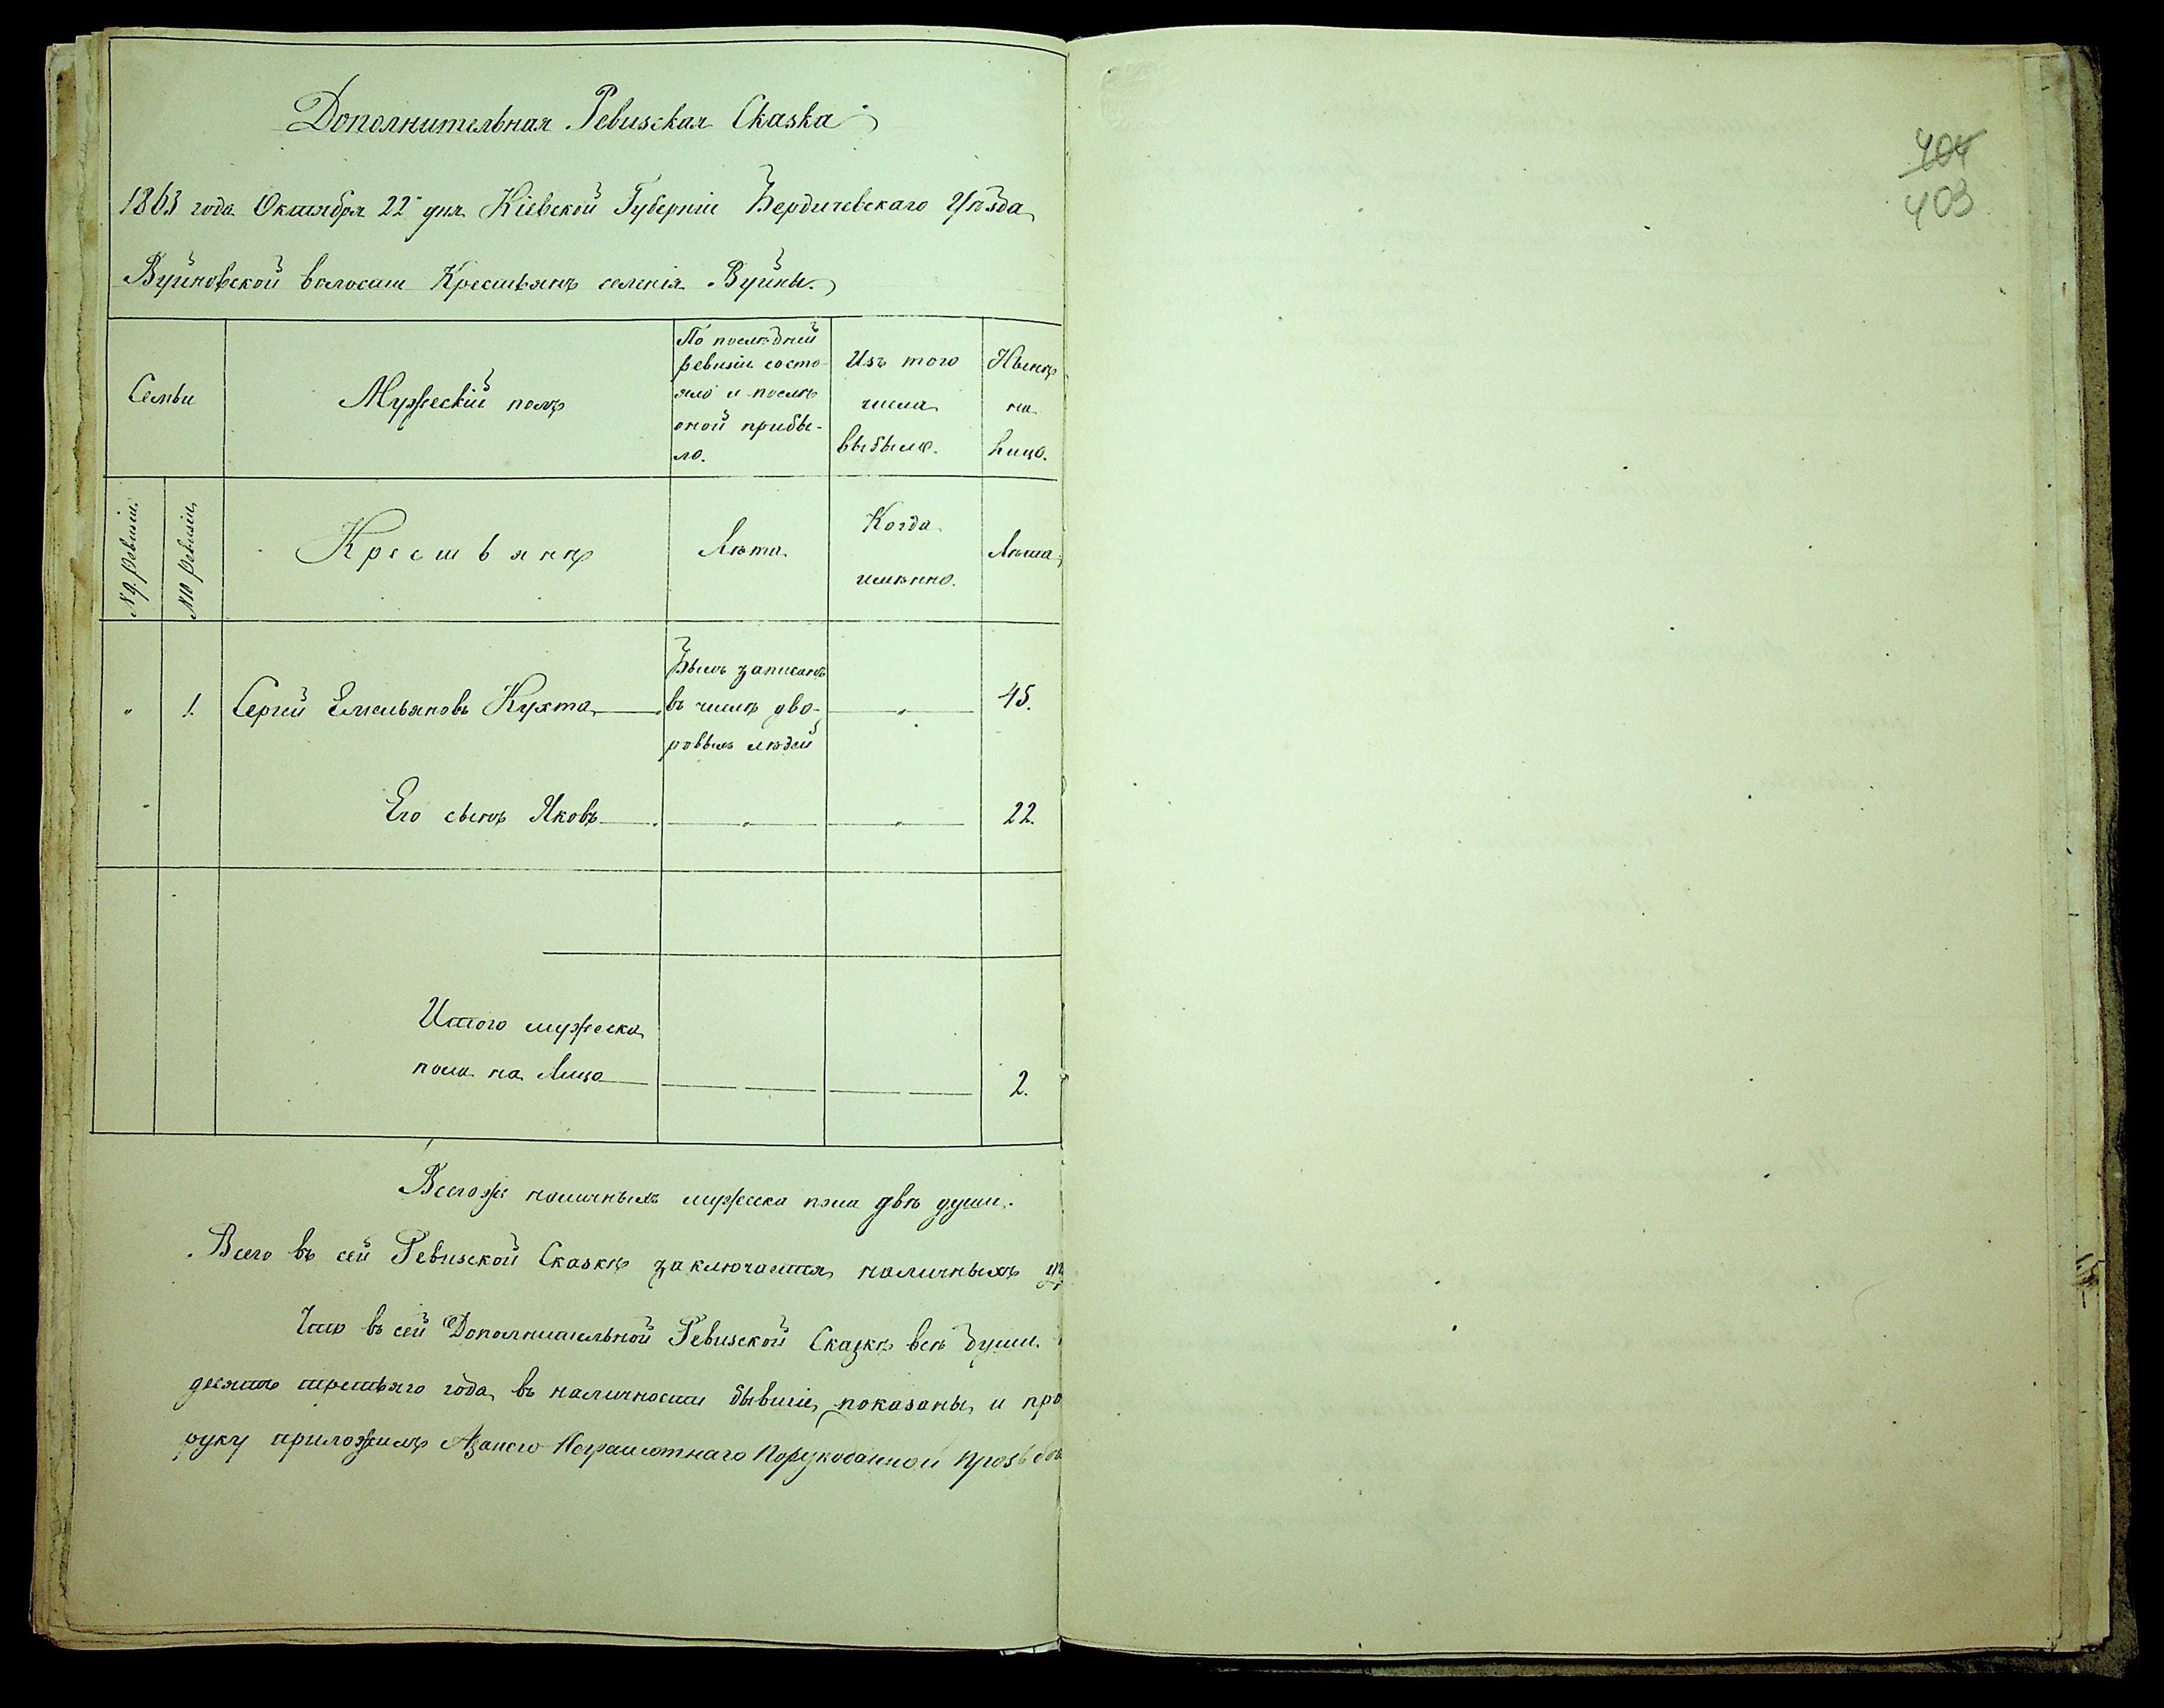 Дополнительная Ревизская Сказка
1863 года Октября 22 дня Кіевской Губерніи Бердичевскаго Уѣзда,
Вуйновской волости Крестьянъ селенія Вуйны.
Семьи
Мужескій полъ
По послѣдней
ревизіи состо-
яло и послѣ
оной прибы-
ло.
Изъ того
числа
выбыло.
Нынѣ
на
лицо.
№ 9 ревизіи.
№ 10 ревизіи,
Крестьянъ
Лѣта.
Когда
именно.
Лѣта,
" 1. Сергей Емельяновъ Кухта
Былъ записанъ
въ числѣ дво-
ровыхъ людей
" 45.
" Его сынъ Яковъ " " 22.
Итого мужеска
пола на Лицо 2.
Всегоже наличныхъ мужеска пола двѣ души.
Всего въ сей Ревизской Сказкѣ заключается наличныхъ
Что въ сей Дополнительной Ревизской Сказкѣ всѣ души.
десятъ третьяго года, въ наличности бывшіе, показаны, и про
руку приложилъ Азанего Неграмотнаго Порукоданной прозьбѣ
404
403